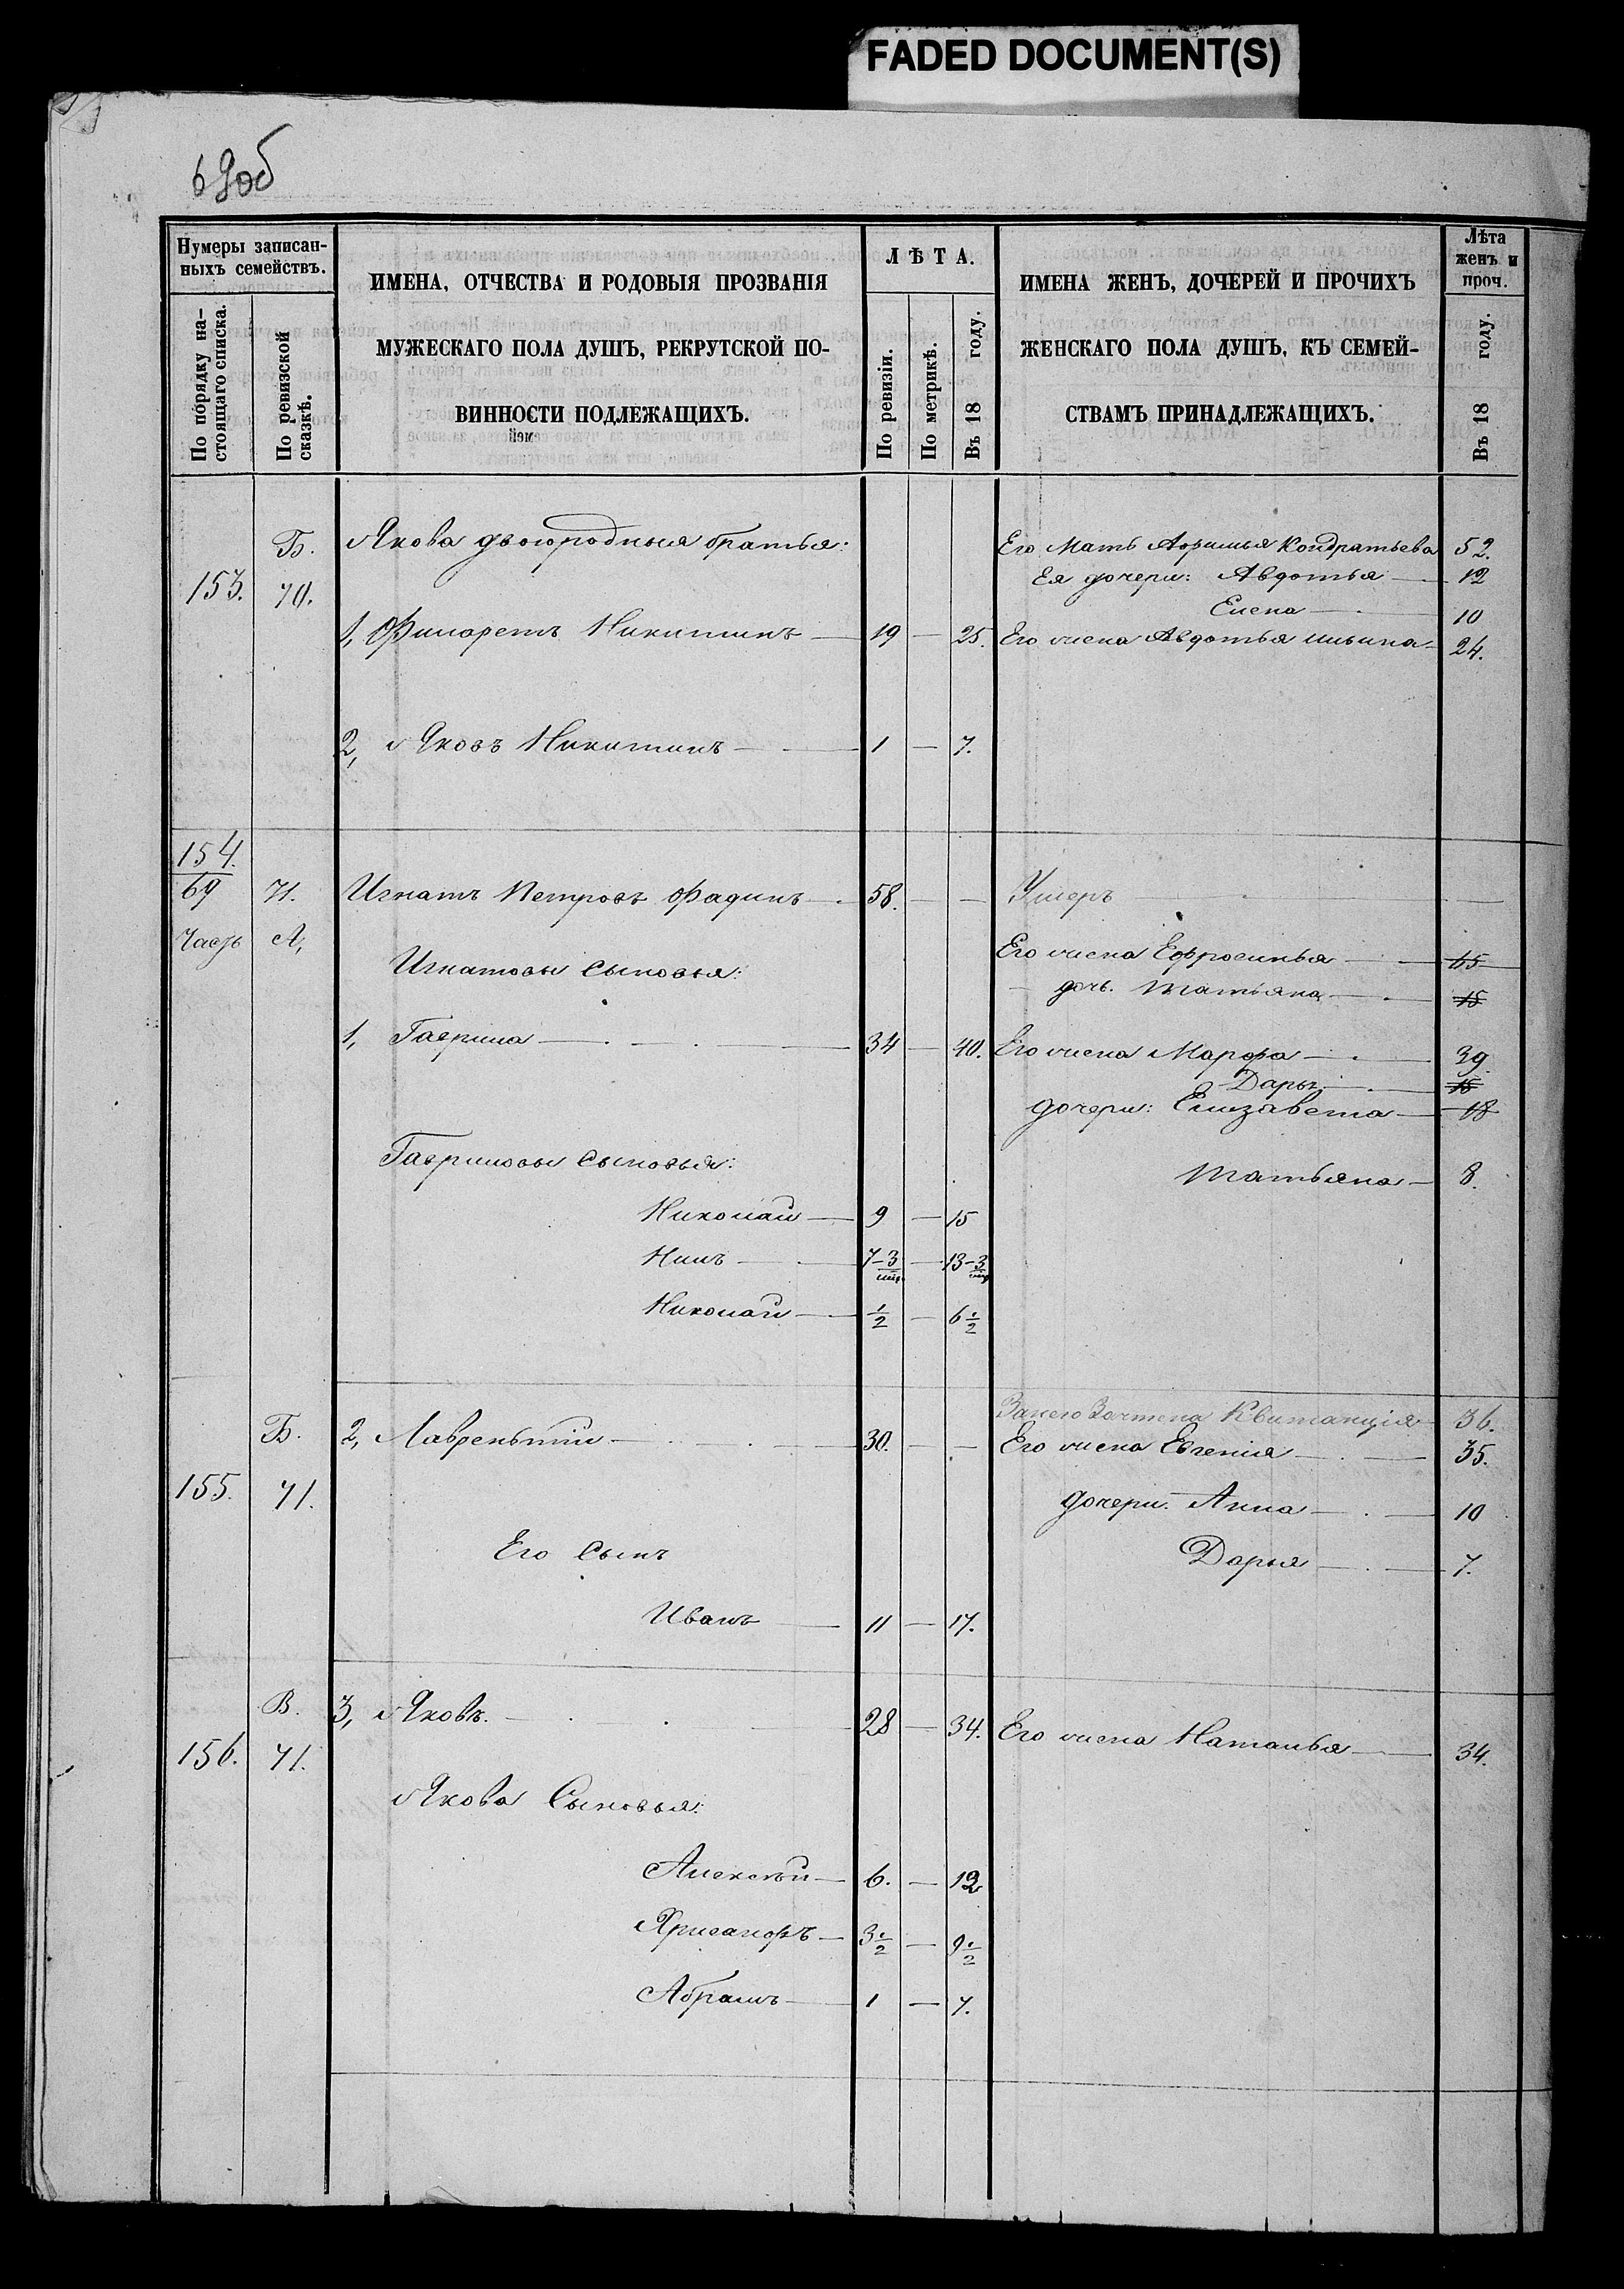 FADED DOCUMENT(S)
69об
Нумеры записан-
ныхъ семействъ.
По порядку на-
стоящаго списка.
По ревизской
сказкѣ.
ИМЕНА, ОТЧЕСТВА И РОДОВЫЯ ПРОЗВАНІЯ
МУЖЕСКАГО ПОЛА ДУШЪ, РЕКРУТСКОЙ ПО-
ВИННОСТИ ПОДЛЕЖАЩИХЪ.
ЛѢТА.
По ревизіи.
По метрикѣ.
Въ 18 году.
ИМЕНА ЖЕНЪ, ДОЧЕРЕЙ И ПРОЧИХЪ
ЖЕНСКАГО ПОЛА ДУШЪ, КЪ СЕМЕЙ-
СТВАМЪ ПРИНАДЛЕЖАЩИХЪ.
Лѣта
женъ и
проч.
Въ 18 году.
Б. Якова двоюродныя братья: Его Мать Афимья Кондратьева 52.
153. 70. Ея дочери: Авдотья — 12
Елена — 10
1, Филаретъ Никитинъ — 19 — 25. Его жена Авдотья Ильина — 24.
2, Яковъ Никитинъ — 1 — 7.
154.
69 71. Игнатъ Петровъ Фадинъ — 58. — — Умеръ — —
Часть А,
Игнатовы сыновья: Его жена Ефросинья — 65
— дочь Татьяна — 15
1, Гаврила — 34 — 40. Его жена Марфа — 39.
Дарья — 15
дочери: Елизавета — 18
Гавриловы сыновья: Татьяна — 8.
Николай — 9 — 15
Нилъ — 7-3 — 13-3
Николай — ½ — 6½
За него Зачтена Квитанція 36.
Б. 2, Лаврентій — 30. — — Его жена Евгенія — 35.
155. 71. дочери: Анна — 10
Его Сынъ Дарья — 7.
Иванъ — 11 — 17.
В. 3, Яковъ. — 28 — 34. Его жена Наталья — 34.
156. 71.
Якова Сыновья:
Алексѣй — 6. — 12
Хрисанфъ — 3½ — 9½
Абрамъ — 1 — 7.